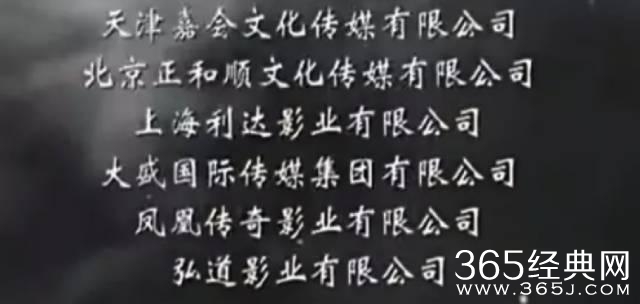 天津嘉会文化传媒有限公司
北京正和顺文化传媒有限公司
上海利达影业有限公司
大盛国际传媒集团有限公司
凤凰传奇影业有限公司
弘道影业有限公司
365经典网
WWW.365J.COM